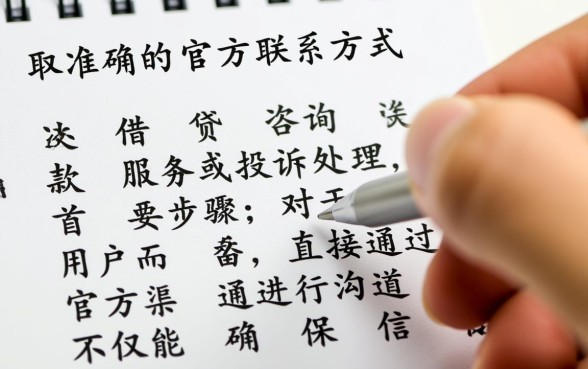 取准确的官方联系方式
借 贷 咨询
款 服务或投诉处理，
首 要步骤；对
用户而 ，直接通过
官方渠 通进行沟道
不仅能 确 保 信